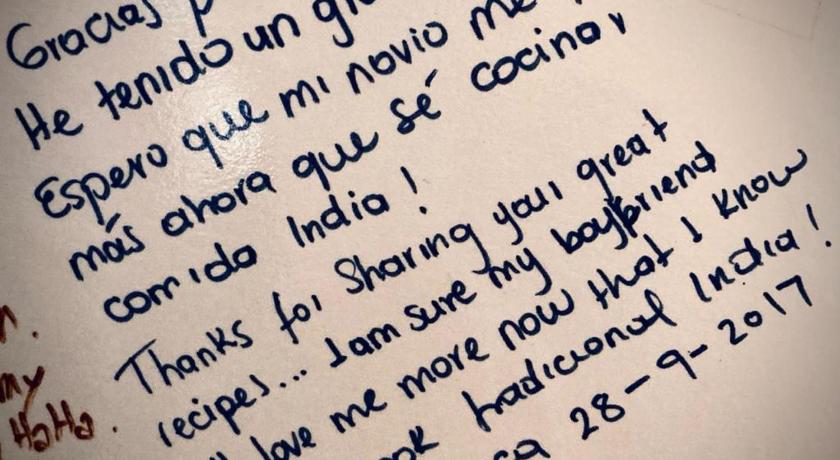 Gracias p
He tenido un g
Espero que mi novio me
más ahora que sé cocinar
comida India!
Thanks for Sharing your great
recipes... I am sure my boyfriend
love me more now that I know
ook tradicional India!
ca 28-9-2017
n.
my
HaHa.